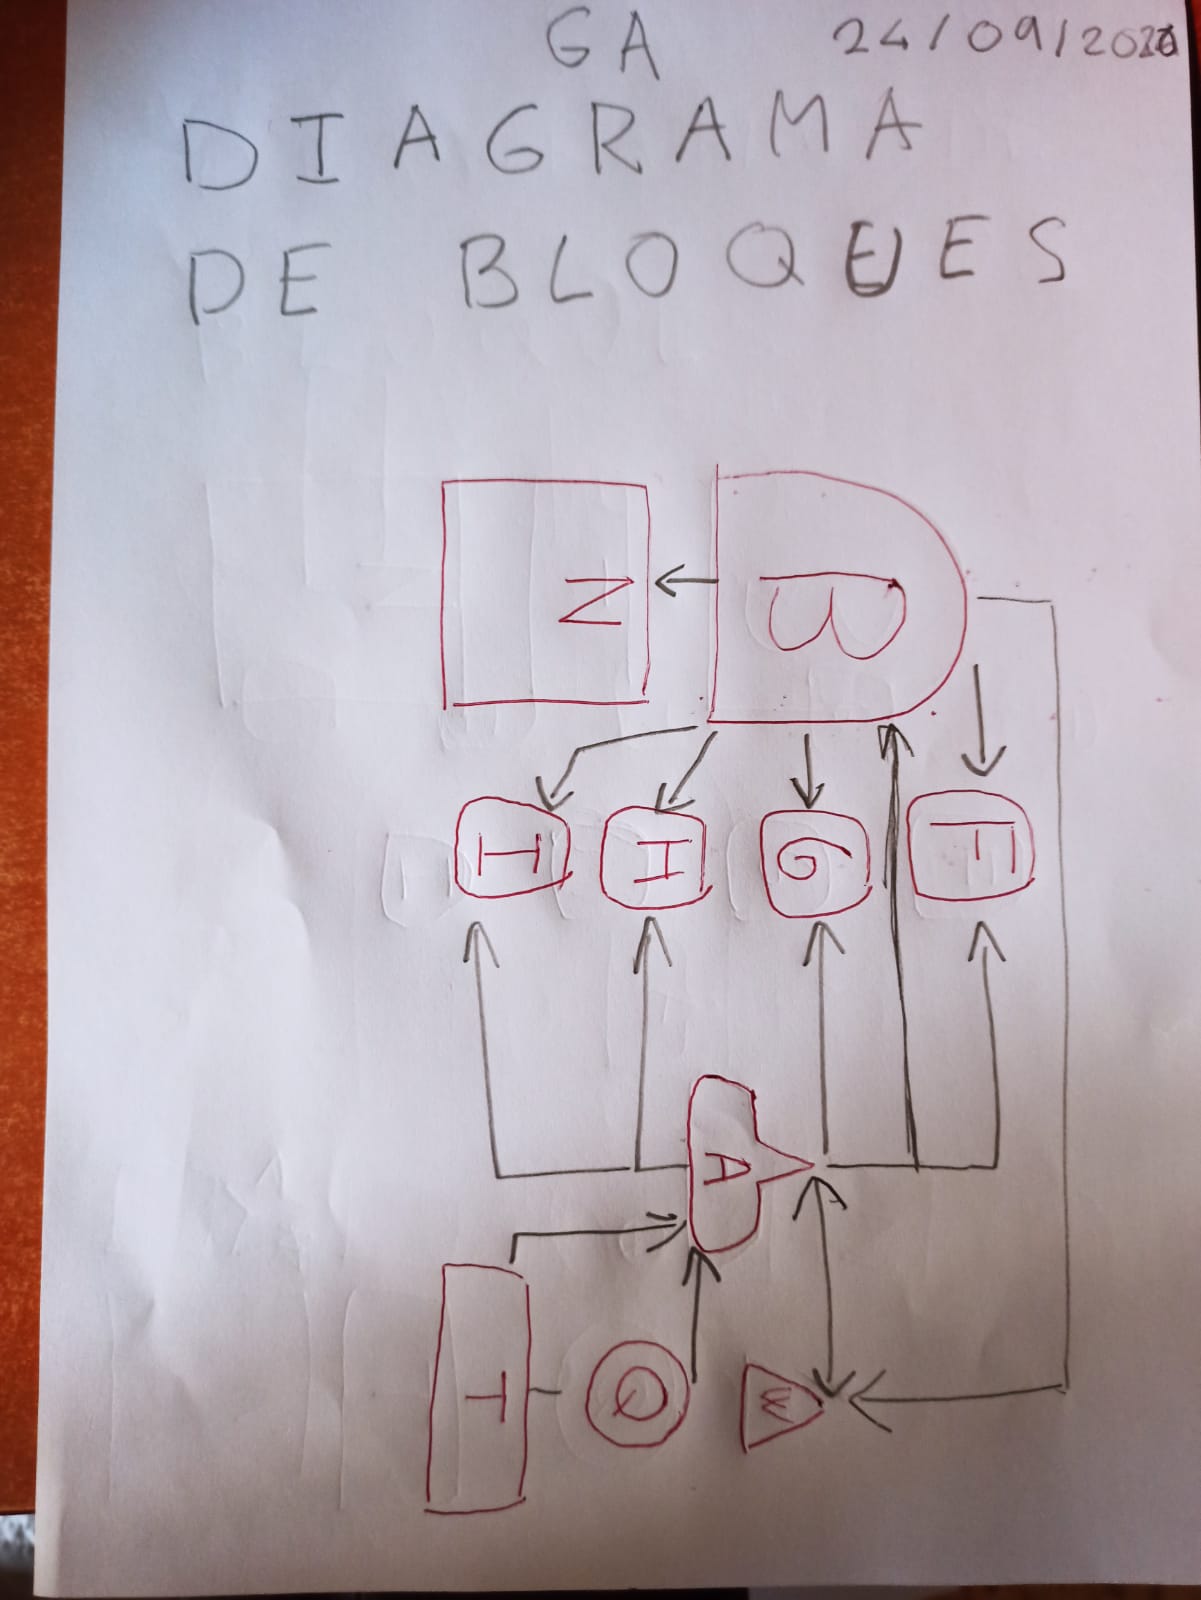 GA 24/09/2020
DIAGRAMA
DE BLOQUES
N B
H I G F
A
T Q W